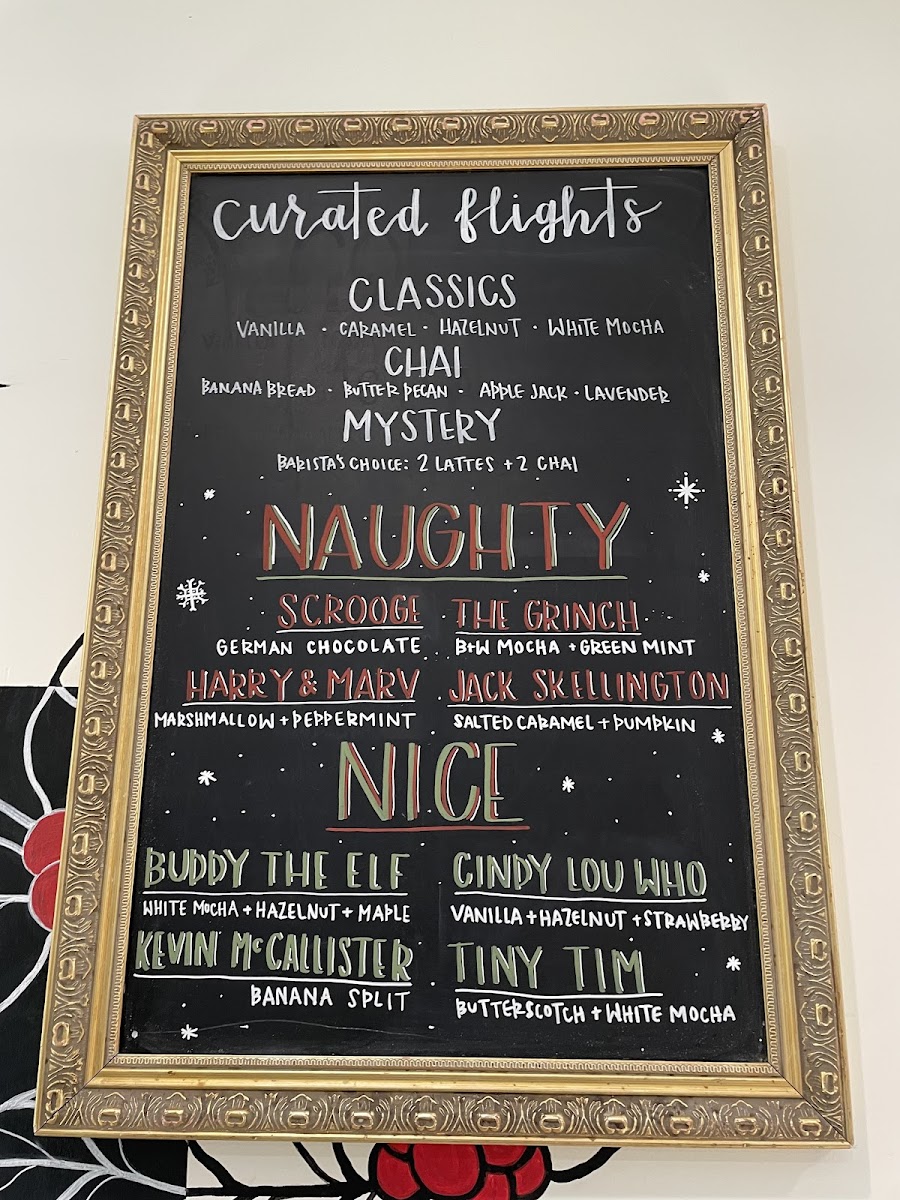 curated flights
CLASSICS
VANILLA · CARAMEL · HAZELNUT · WHITE MOCHA
CHAI
BANANA BREAD · BUTTER PECAN · APPLE JACK · LAVENDER
MYSTERY
BARISTA'S CHOICE: 2 LATTES + 2 CHAI
NAUGHTY
SCROOGE
GERMAN CHOCOLATE
THE GRINCH
B+W MOCHA + GREEN MINT
HARRY & MARV
MARSHMALLOW + PEPPERMINT
JACK SKELLINGTON
SALTED CARAMEL + PUMPKIN
NICE
BUDDY THE ELF
WHITE MOCHA + HAZELNUT + MAPLE
CINDY LOU WHO
VANILLA + HAZELNUT + STRAWBERRY
KEVIN McCALLISTER
BANANA SPLIT
TINY TIM
BUTTERSCOTCH + WHITE MOCHA